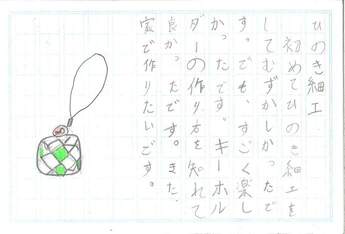 ひのき細工
初めてひのき細工を
してむずかしかったで
す。でも、すごく楽し
かったです。キーホル
ダーの作り方を知れて
良かったです。また、
家で作りたいです。